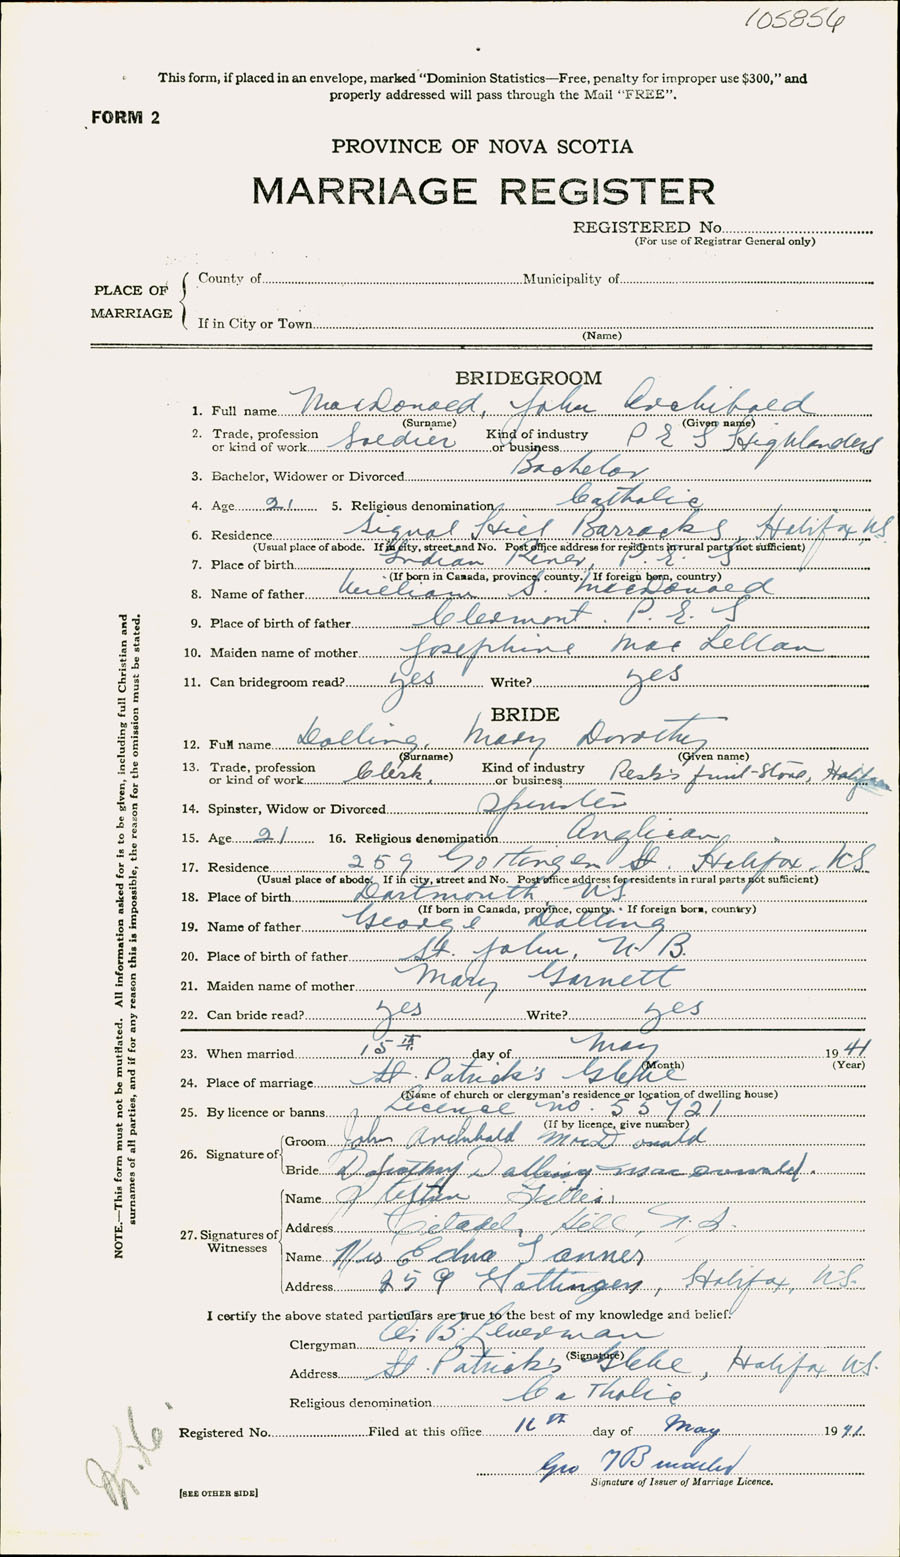 105856
This form, if placed in an envelope, marked "Dominion Statistics—Free, penalty for improper use $300," and
properly addressed will pass through the Mail "FREE".
FORM 2
PROVINCE OF NOVA SCOTIA
MARRIAGE REGISTER
REGISTERED No.
(For use of Registrar General only)
PLACE OF MARRIAGE
County of Municipality of
If in City or Town
(Name)
BRIDEGROOM
1. Full name MacDonald, John Archibald
(Surname) (Given name)
2. Trade, profession or kind of work Soldier Kind of industry or business P E I Highlanders
3. Bachelor, Widower or Divorced Bachelor
4. Age 21 5. Religious denomination Catholic
6. Residence Signal Hill Barracks, Halifax N.S.
(Usual place of abode. If in city, street and No. Post office address for residents in rural parts not sufficient)
7. Place of birth Indian River, P. E. I
(If born in Canada, province, county. If foreign born, country)
8. Name of father William S. MacDonald
9. Place of birth of father Clermont. P. E. I
10. Maiden name of mother Josephine MacLellan
11. Can bridegroom read? yes Write? yes
BRIDE
12. Full name Dolling, Mary Dorothy
(Surname) (Given name)
13. Trade, profession or kind of work Clerk. Kind of industry or business fruit-store, Halifax
14. Spinster, Widow or Divorced Spinster
15. Age 21 16. Religious denomination Anglican
17. Residence 259 Gottingen St. Halifax, N.S
(Usual place of abode. If in city, street and No. Post office address for residents in rural parts not sufficient)
18. Place of birth Dartmouth N.S
(If born in Canada, province, county. If foreign born, country)
19. Name of father George Dolling
20. Place of birth of father St. John, N. B.
21. Maiden name of mother Mary Garnett
22. Can bride read? yes Write? yes
23. When married 15th day of May 1941
(Month) (Year)
24. Place of marriage St. Patrick's Glebe
(Name of church or clergyman's residence or location of dwelling house)
25. By licence or banns Licence no. 55721
(If by licence, give number)
26. Signature of
Groom John Archibald MacDonald
Bride Dorothy Dolling MacDonald.
27. Signatures of Witnesses
Name Gillis
Address Citadel Hill, N.S.
Name Mrs Edna Tanner
Address 259 Gottingen, Halifax, N.S.
I certify the above stated particulars are true to the best of my knowledge and belief.
Clergyman B.
(Signature)
Address St. Patrick's Glebe, Halifax N.S.
Religious denomination Catholic
Registered No. Filed at this office 16th day of May 1941.
Geo
Signature of Issuer of Marriage Licence.
[SEE OTHER SIDE]
NOTE.—This form must not be mutilated. All information asked for is to be given, including full Christian and
surnames of all parties, and if for any reason this is impossible, the reason for the omission must be stated.